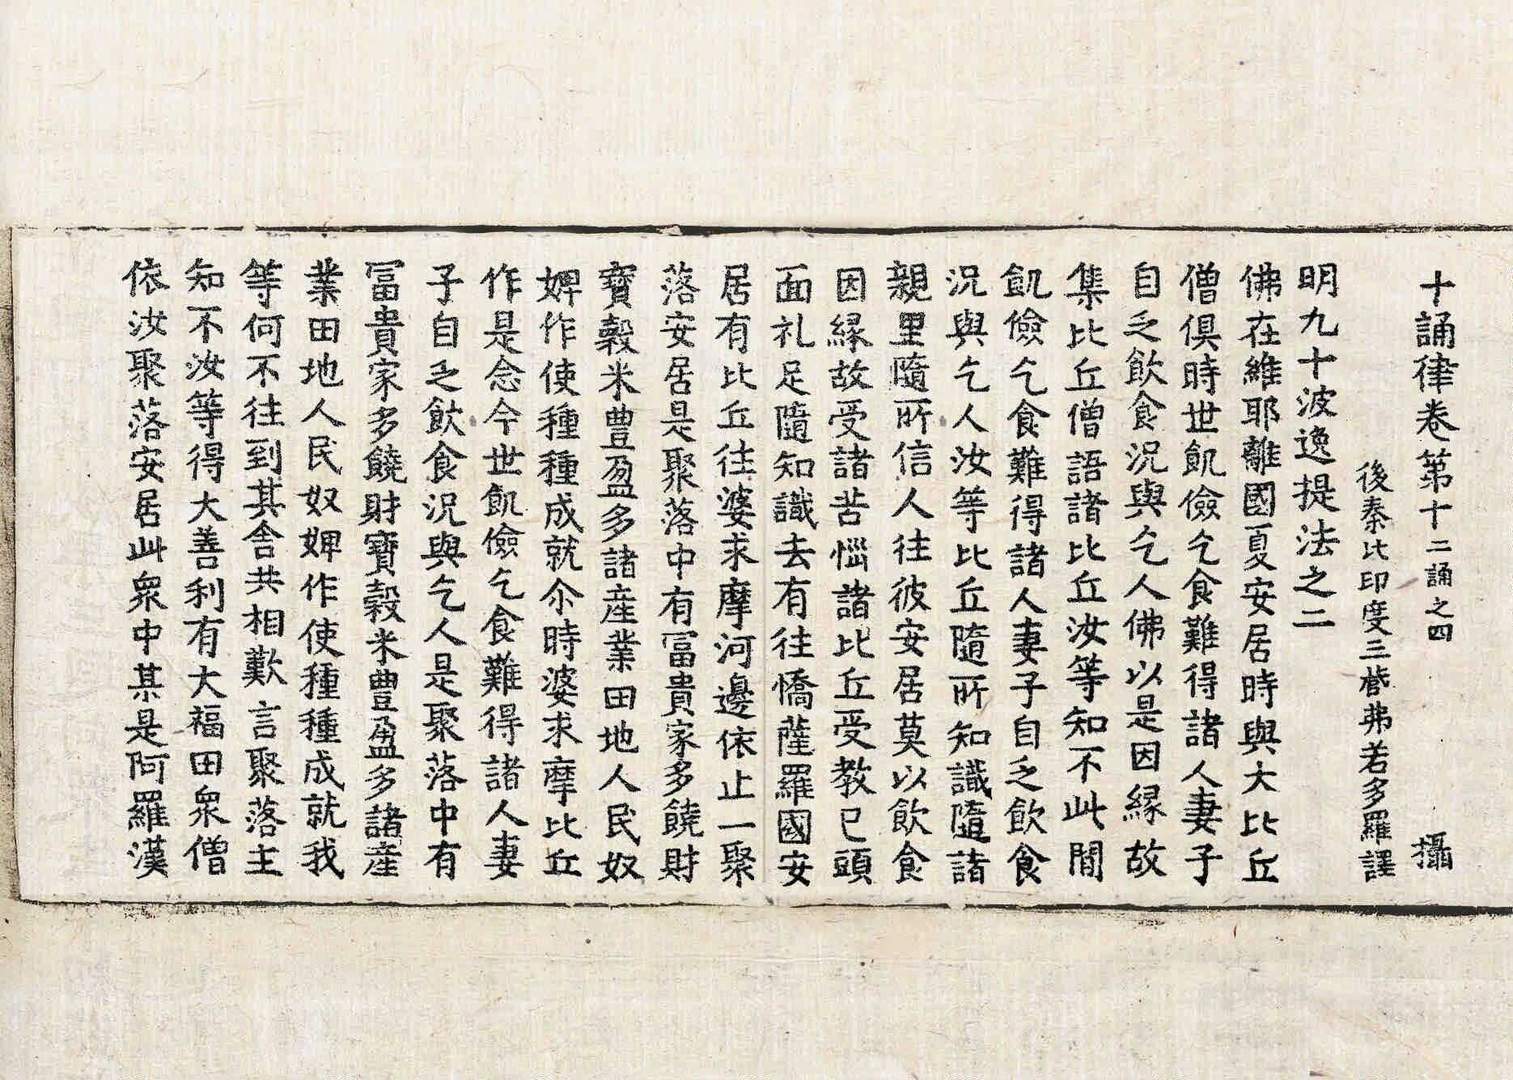 十誦律卷第十二誦之四 攝
後秦北印度三藏弗若多羅譯
明九十波逸提法之二
佛在維耶離國夏安居時與大比丘
僧俱時世飢儉乞食難得諸人妻子
自乏飲食況與乞人佛以是因緣故
集比丘僧語諸比丘汝等知不此間
飢儉乞食難得諸人妻子自乏飲食
況與乞人汝等比丘隨所知識隨諸
親里隨所信人往彼安居莫以飲食
因緣故受諸苦惱諸比丘受教已頭
面礼足隨知識去有往憍薩羅國安
居有比丘往婆求摩河邊依止一聚
落安居是聚落中有冨貴家多饒財
寶穀米豊盈多諸産業田地人民奴
婢作使種種成就尒時婆求摩比丘
作是念今世飢儉乞食難得諸人妻
子自乏飲食況與乞人是聚落中有
冨貴家多饒財寶穀米豊盈多諸産
業田地人民奴婢作使種種成就我
等何不往到其舎共相歎言聚落主
知不汝等得大善利有大福田衆僧
依汝聚落安居此衆中某是阿羅漢